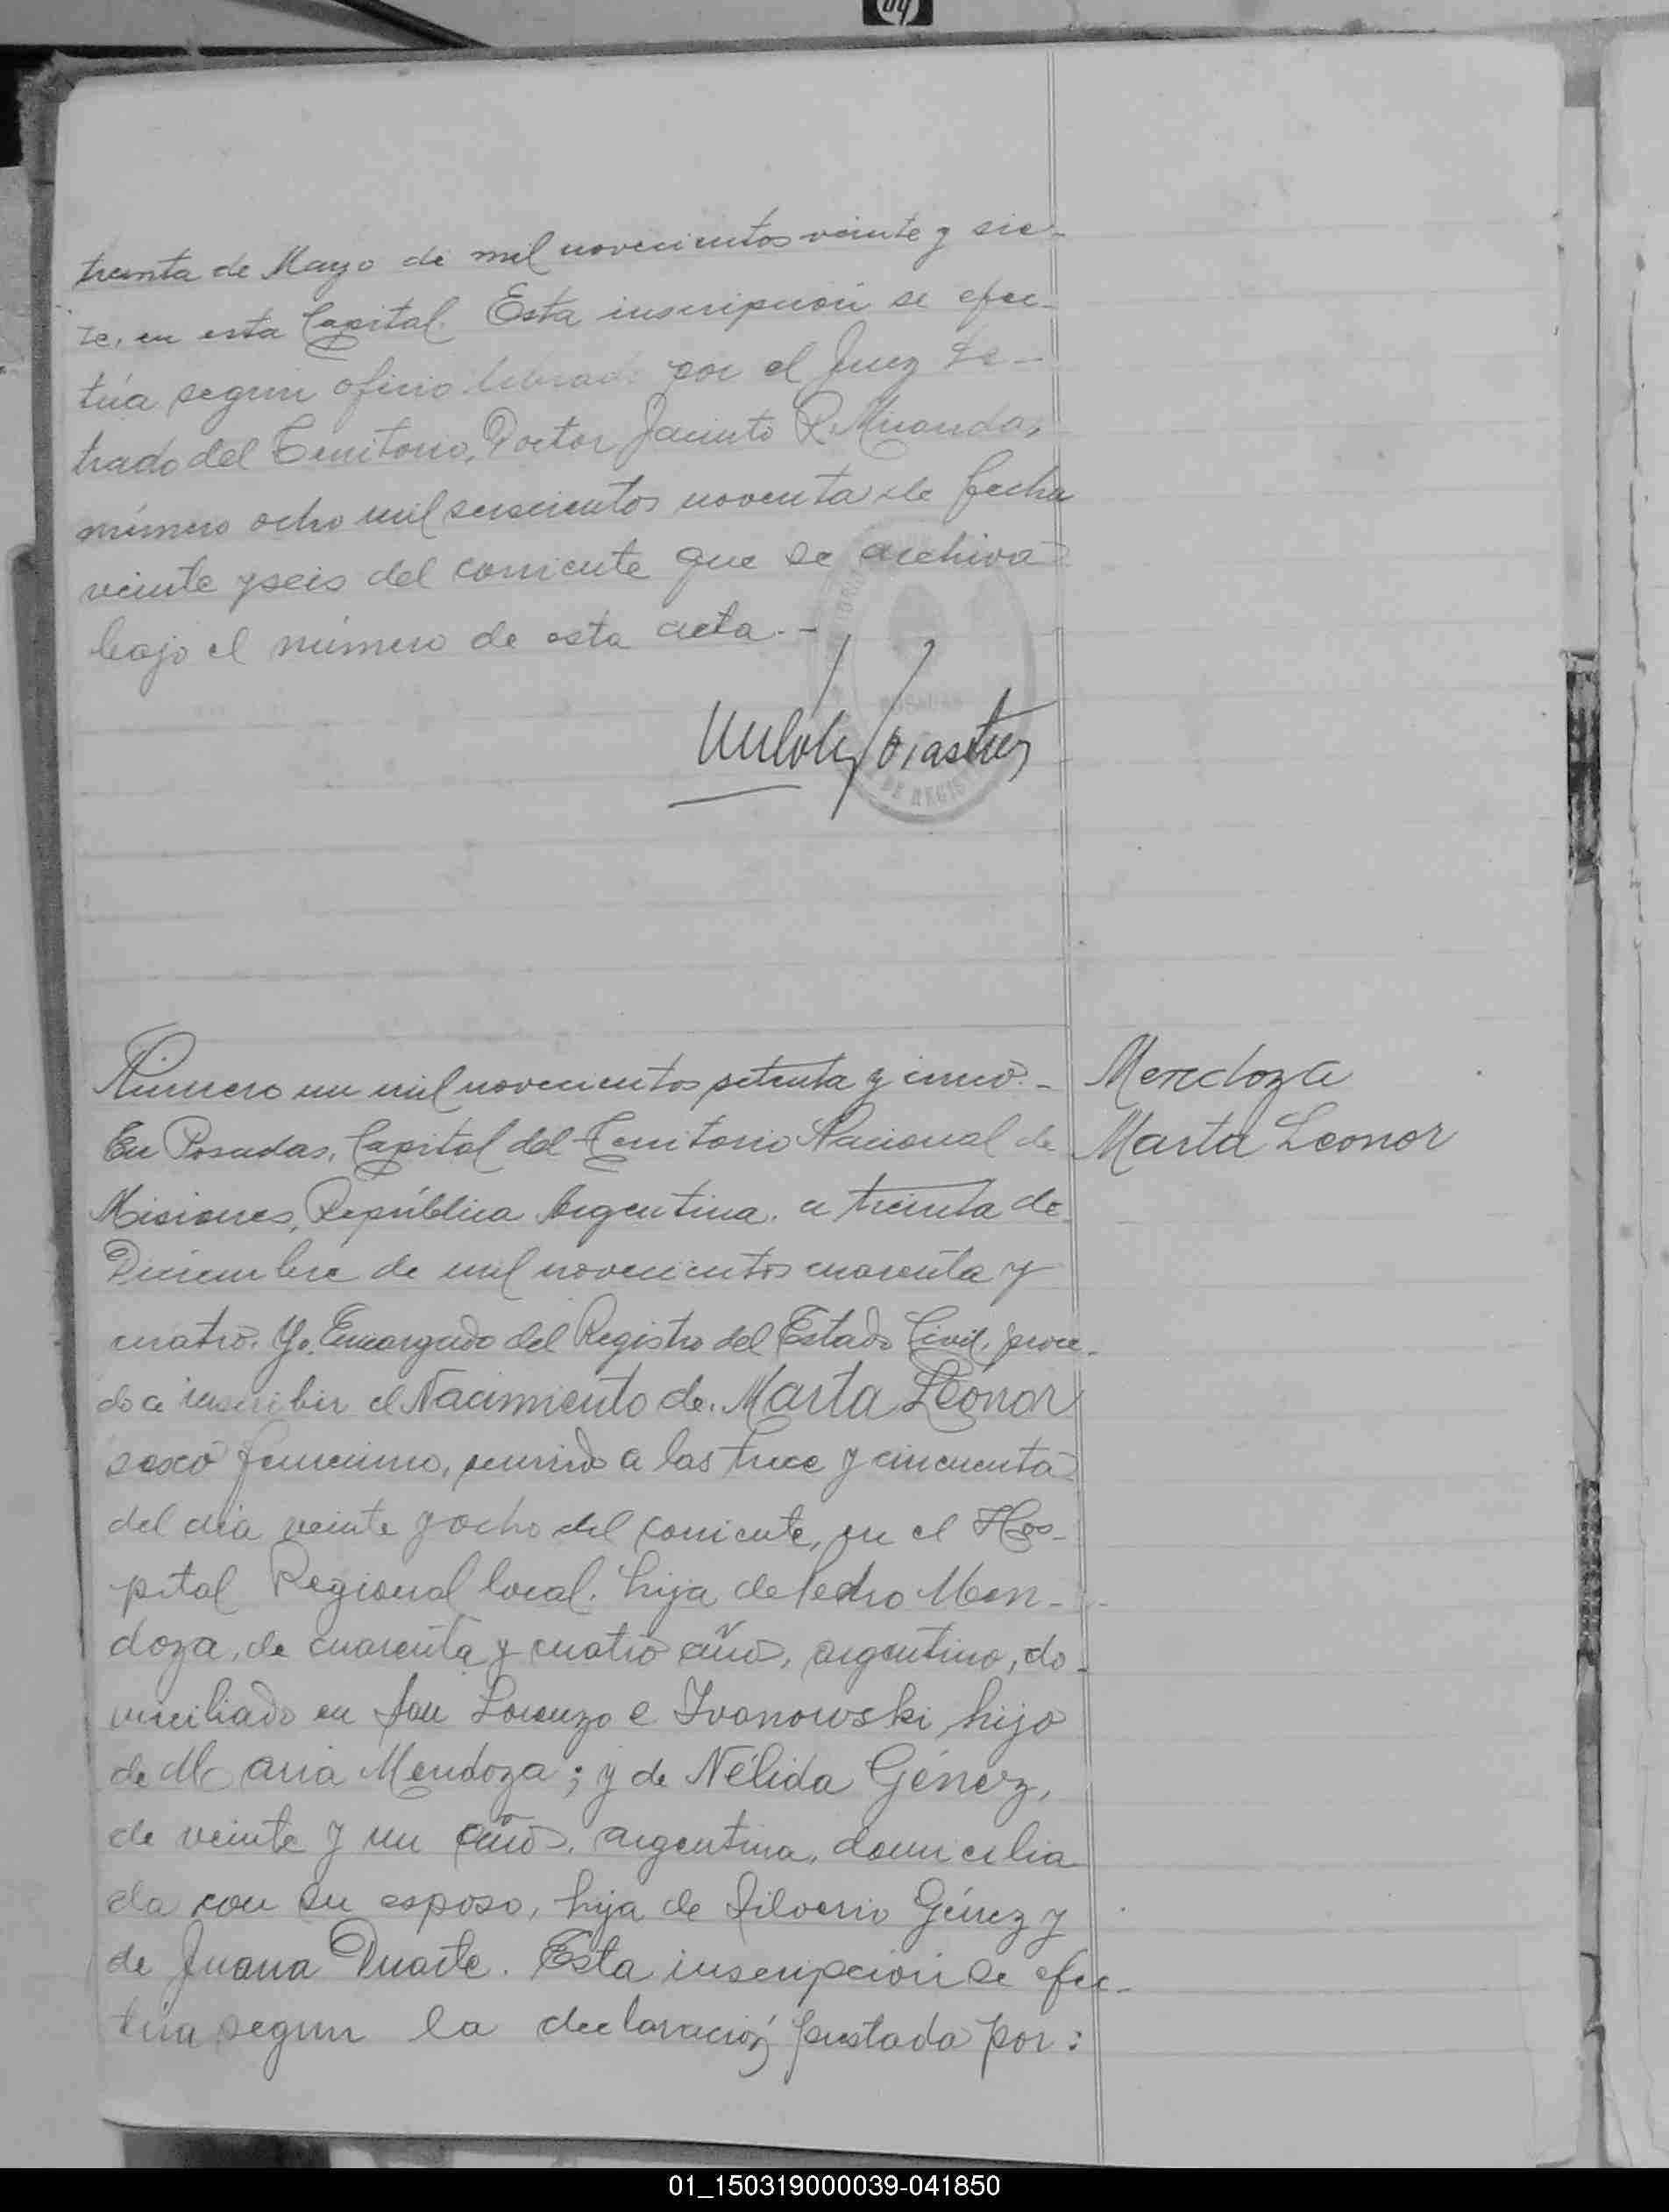 hp
treinta de Mayo de mil novecientos veinte y sie-
te, en esta Capital. Esta inscripción se efec-
túa segun oficio librado por el Juez Le-
trado del Territorio, Doctor Jacinto R. Miranda,
número ocho mil seiscientos noventa de fecha
veinte y seis del corriente que se archiva
bajo el número de esta acta.-
POSADAS
DE REGIST
Número un mil novecientos setenta y cinco.-
Mendoza
En Posadas, Capital del Territorio Nacional de
Marta Leonor
Misiones, República Argentina, a treinta de
Diciembre de mil novecientos cuarenta y
cuatro. Yo, Encargado del Registro del Estado Civil, proce-
do a inscribir el Nacimiento de. Marta Leonor
sexo femenino, ocurrido a las trece y cincuenta
del día veinte y ocho del corriente, en el Hos-
pital Regional local. hija de Pedro Men-
doza, de cuarenta y cuatro años, argentino, do-
miciliado en San Lorenzo e Ivanowski, hijo
de Maria Mendoza; y de Nélida Génez,
de veinte y un años, argentina, domicilia
da con su esposo, hija de Silverio Génez y
de Juana Duarte. Esta inscripción se efec-
túa segun la declaración prestada por:
01_150319000039-041850